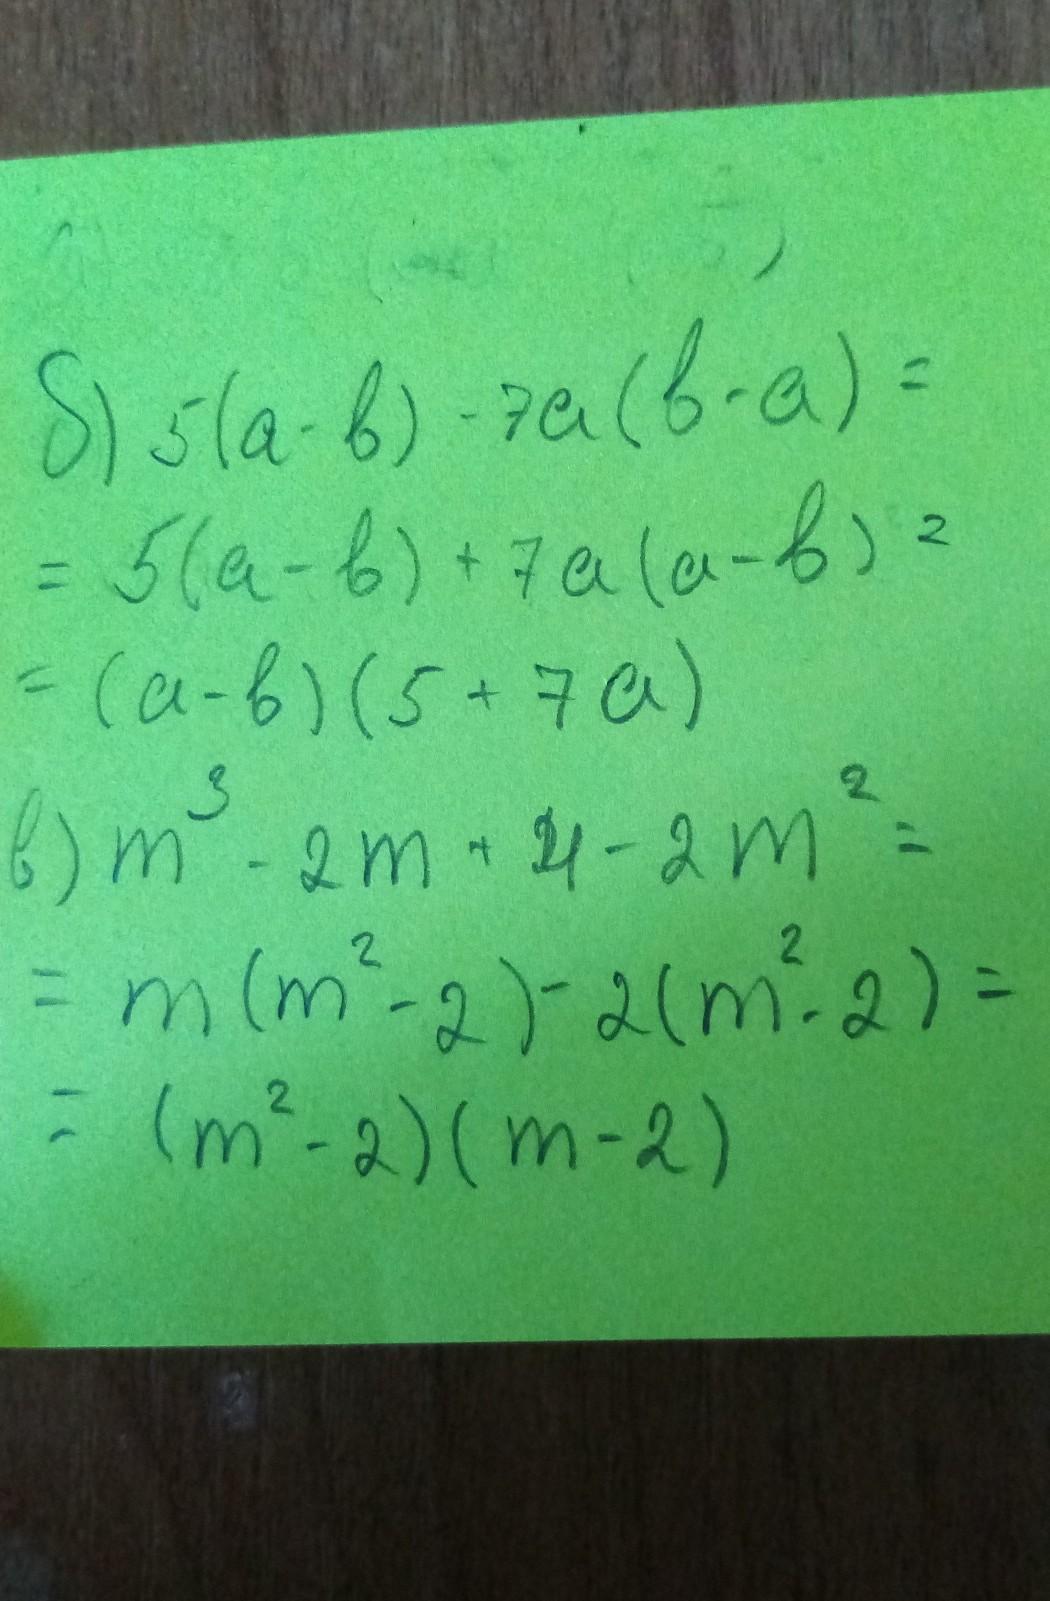 б) 5(a-b) - 7a(b-a) =
= 5(a-b) + 7a(a-b) =
= (a-b)(5 + 7a)
в) m³ - 2m + 4 - 2m² =
= m(m² - 2) - 2(m² - 2) =
= (m² - 2)(m - 2)